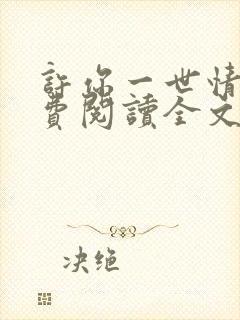 許你一世情
費閱讀全文
决绝